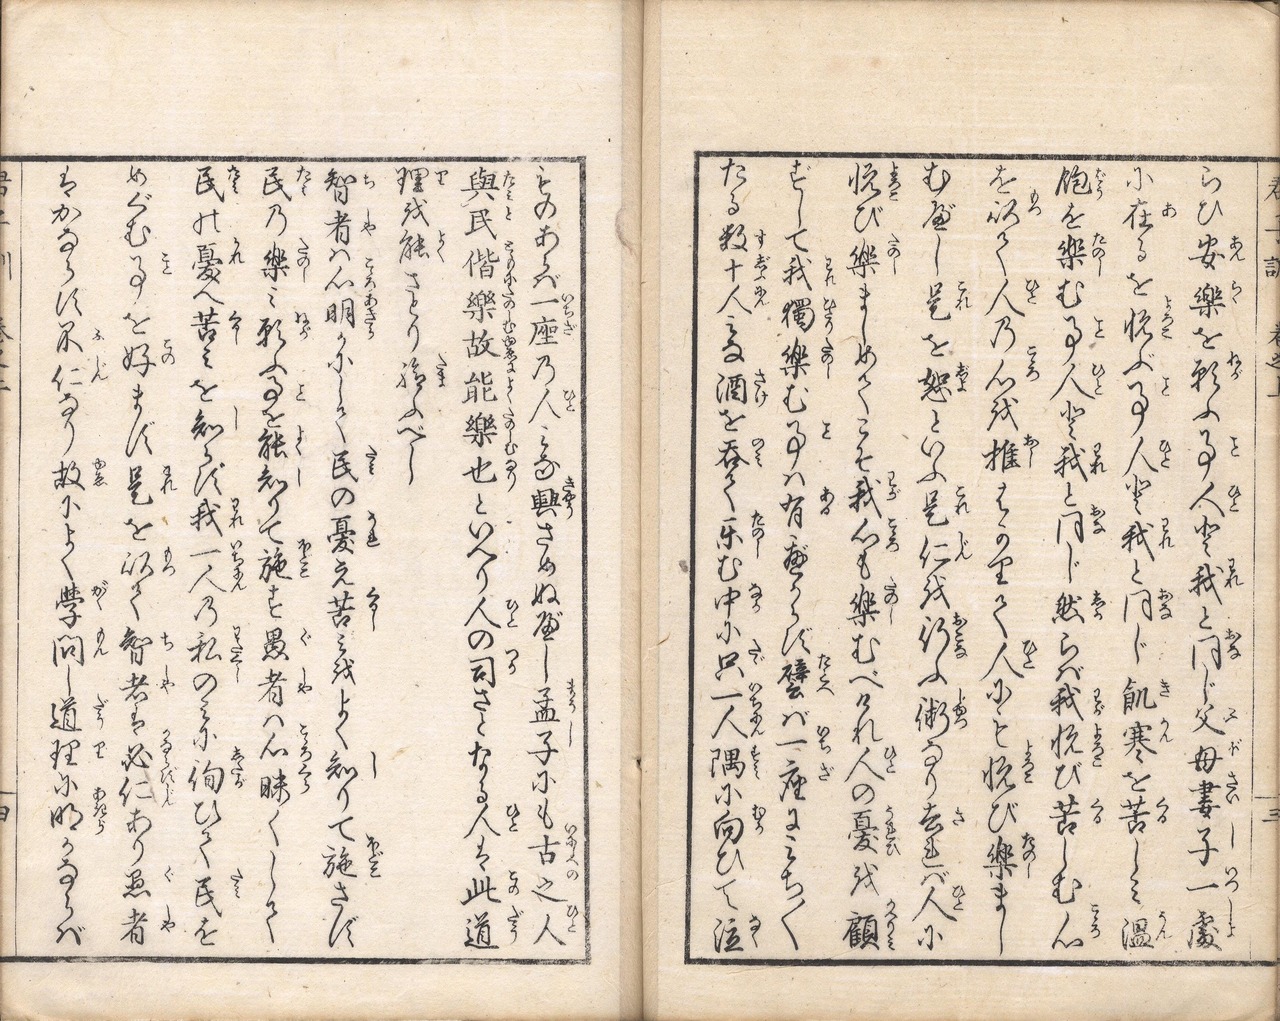 らひ安樂を願ふ事人と我と同じ父母妻子一處
に在るを悦ぶ事人と我と同じ飢寒を苦しミ溫
飽を樂む事人と我と同じ然らバ我悦び苦しむ心
を以て人の心を推はかりて人にも悦び樂まし
むべし是を恕といふ是仁を行ふ術なり去れバ人に
悦び樂ましめてこそ我心も樂むべけれ人の憂を顧
ずして我獨樂む事ハ有べからず譬バ一座にミちみち
たる数十人ミな酒を呑て乐む中に只一人隅に向ひて泣
ものあらバ一座の人ミな興さめぬべし孟子にも古之人
與民偕樂故能樂也といへり人の司さとなる人は此道
理を能さとり給ふべし
智者ハ心明かにして民の憂え苦ミをよく知りて施さず
民の樂ミ願ふ事を能知りて施す愚者ハ心昧くして
民の憂へ苦ミを知らず我一人の私のミに徇ひて民を
めぐむ事を好まず是を以て智者は必仁あり愚者
はかならず不仁なり故によく学問し道理に明かならバ
君子訓 卷之上 十三
君子訓 卷之上 十四